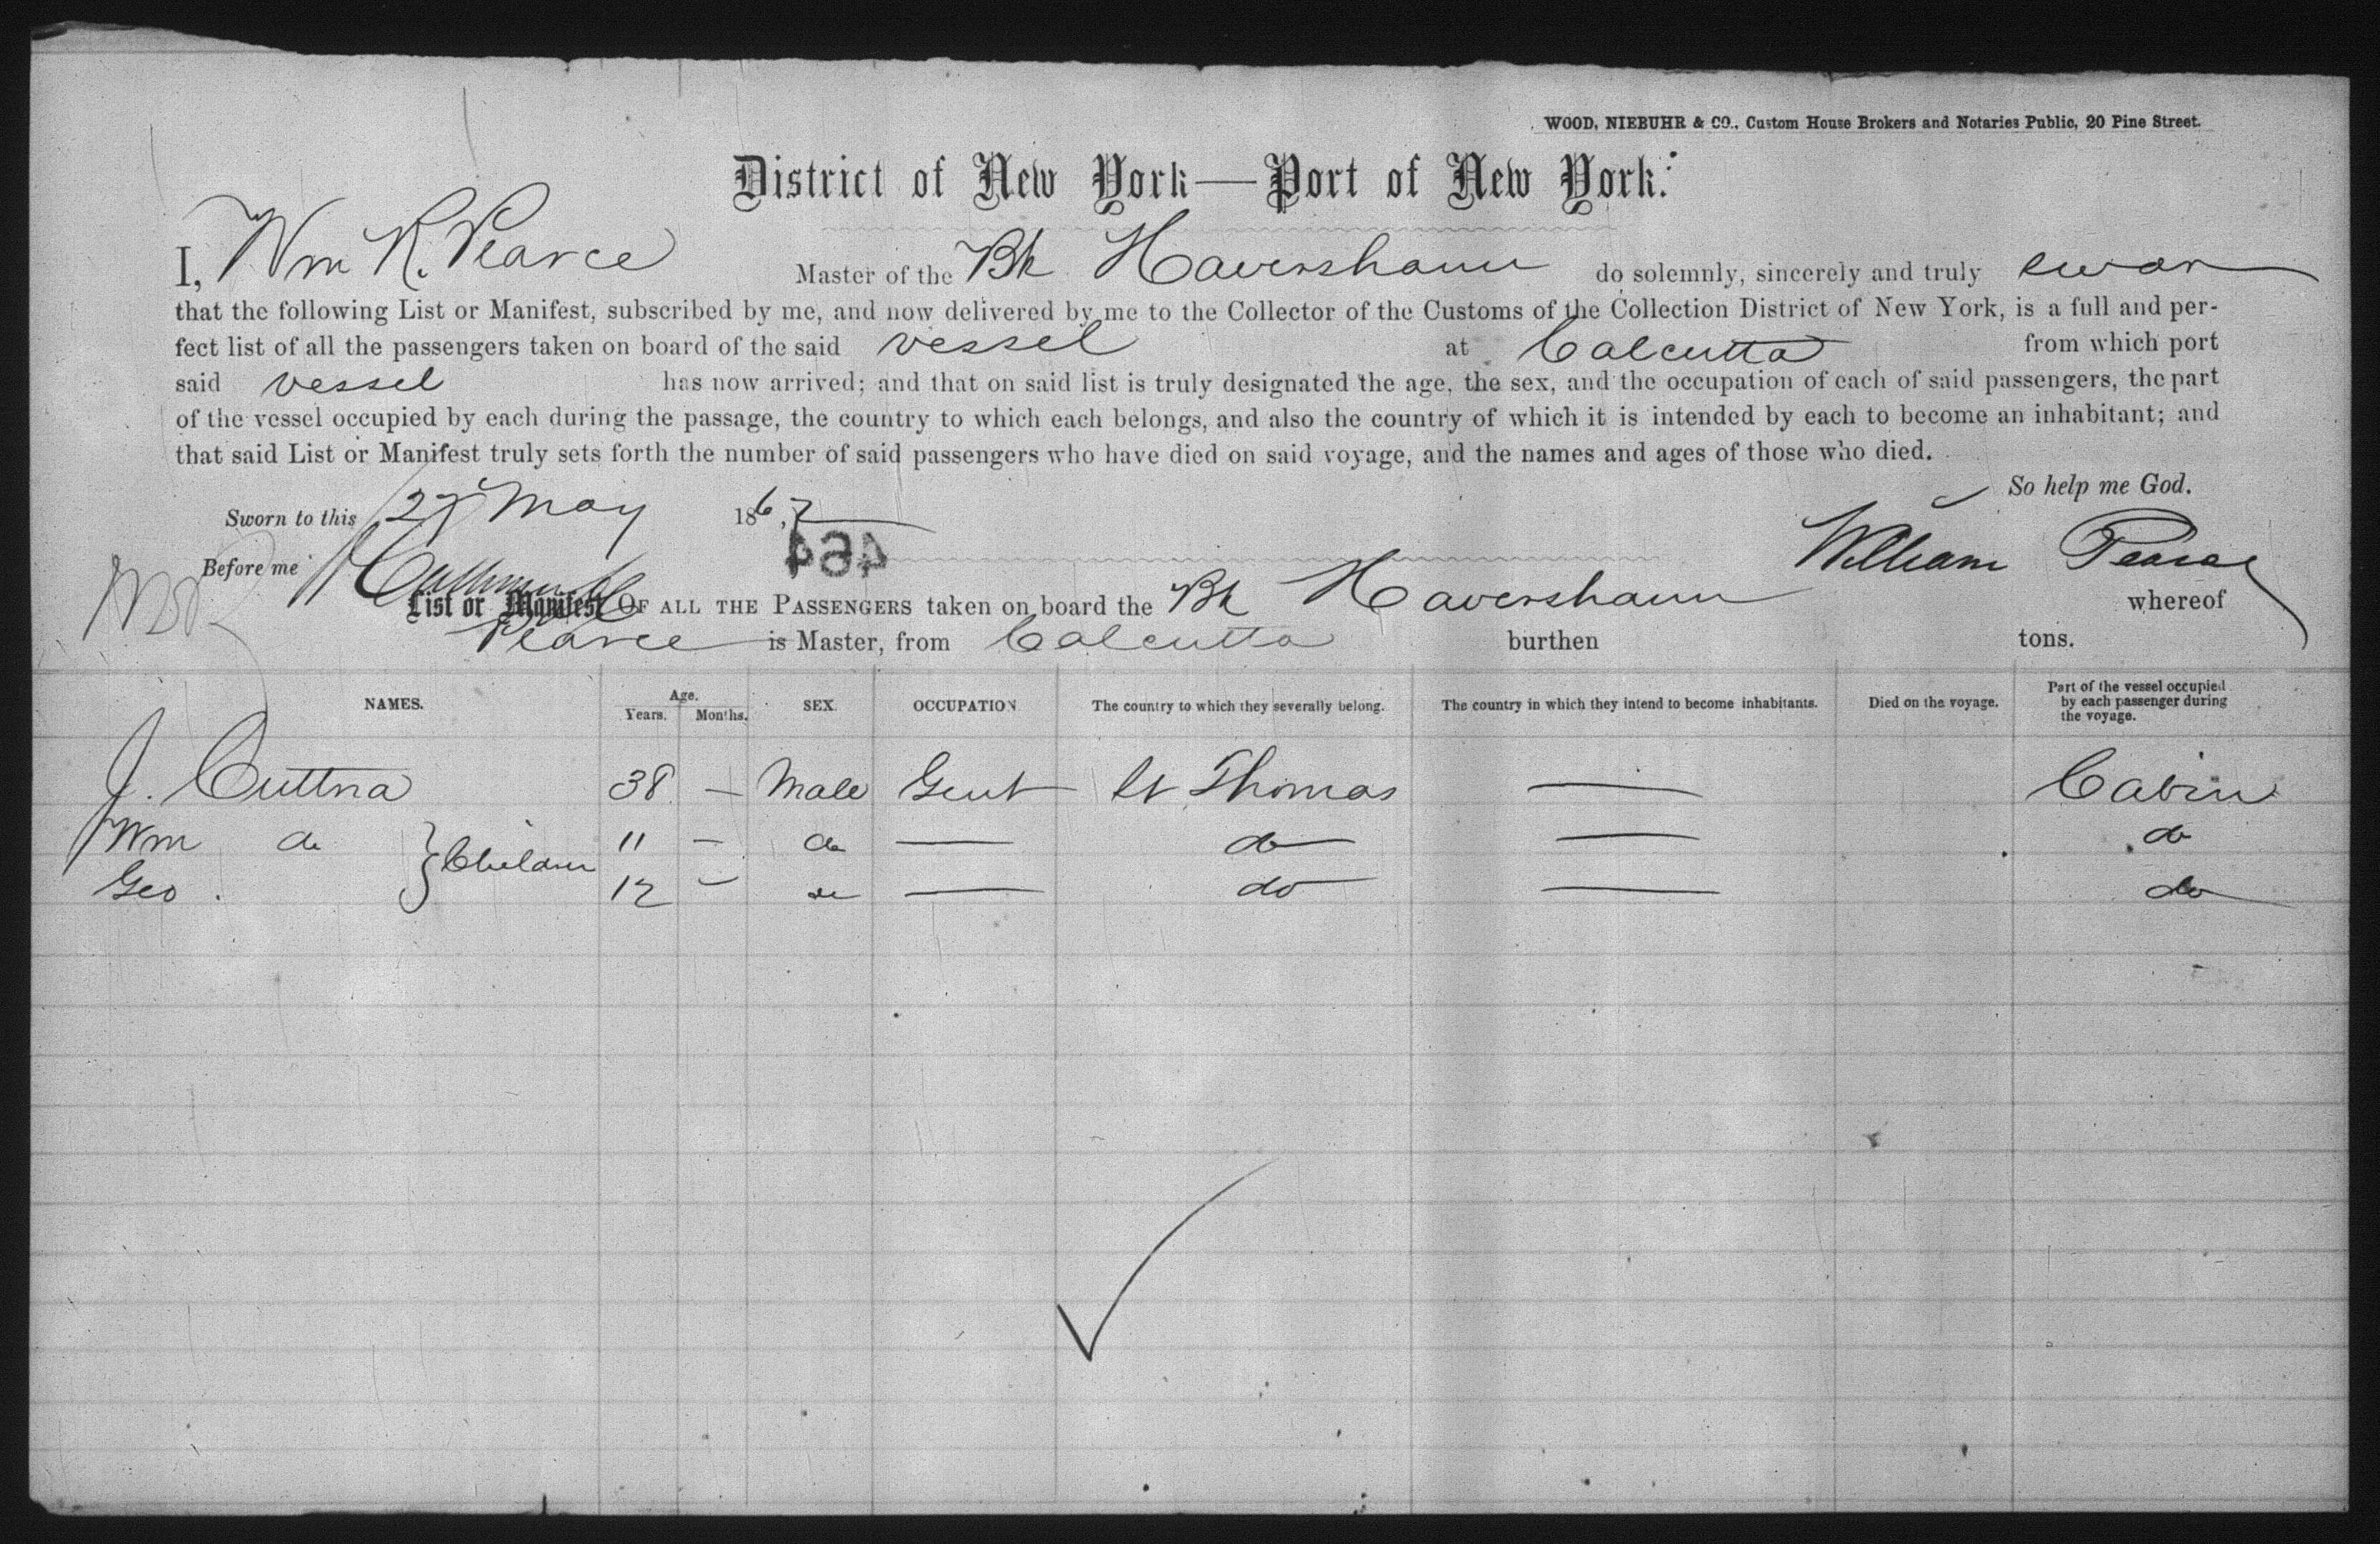 WOOD, NIEBUHR & CO., Custom House Brokers and Notaries Public, 20 Pine Street.
District of New York—Port of New York:
I, Wm R. Pearce Master of the Bk Havershaum do solemnly, sincerely and truly swar
that the following List or Manifest, subscribed by me, and now delivered by me to the Collector of the Customs of the Collection District of New York, is a full and per-
fect list of all the passengers taken on board of the said vessel at Calcutta from which port
said vessel has now arrived; and that on said list is truly designated the age, the sex, and the occupation of each of said passengers, the part
of the vessel occupied by each during the passage, the country to which each belongs, and also the country of which it is intended by each to become an inhabitant; and
that said List or Manifest truly sets forth the number of said passengers who have died on said voyage, and the names and ages of those who died.
So help me God.
Sworn to this 27 May 1867
464
Before me William Pearce
List or Manifest OF ALL THE PASSENGERS taken on board the Bk Havershaum whereof
Pearce is Master, from Calcutta burthen tons.
NAMES. Age. Years. Months. SEX. OCCUPATION. The country to which they severally belong. The country in which they intend to become inhabitants. Died on the voyage. Part of the vessel occupied by each passenger during the voyage.
J. Cuttna 38 — Male Gent St Thomas — Cabin
Wm do } Children 11 — do — do — do
Geo. 12 — do — do — do